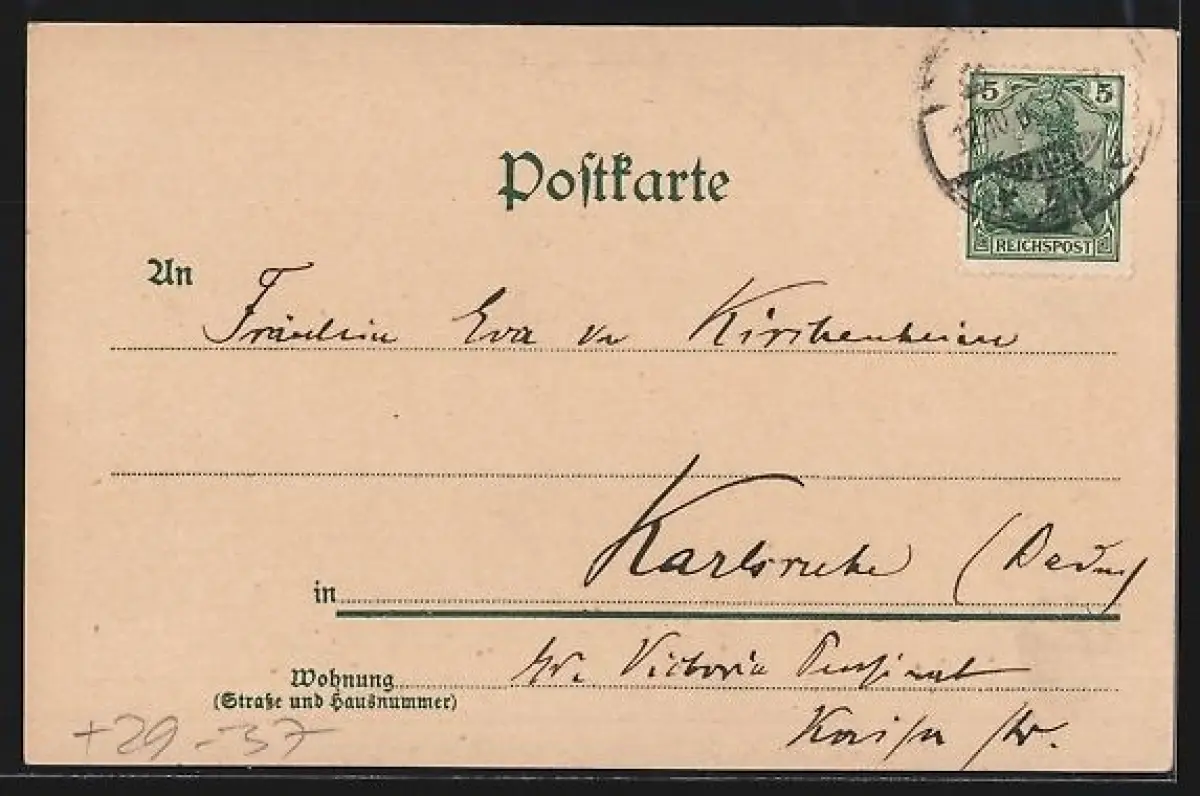 Postkarte
5 5
REICHSPOST
An Fräulein Eva v. Kirchenheim
in Karlsruhe (Baden)
Wohnung Victoria Pensionat
(Straße und Hausnummer)
Kaiser str.
+29-37